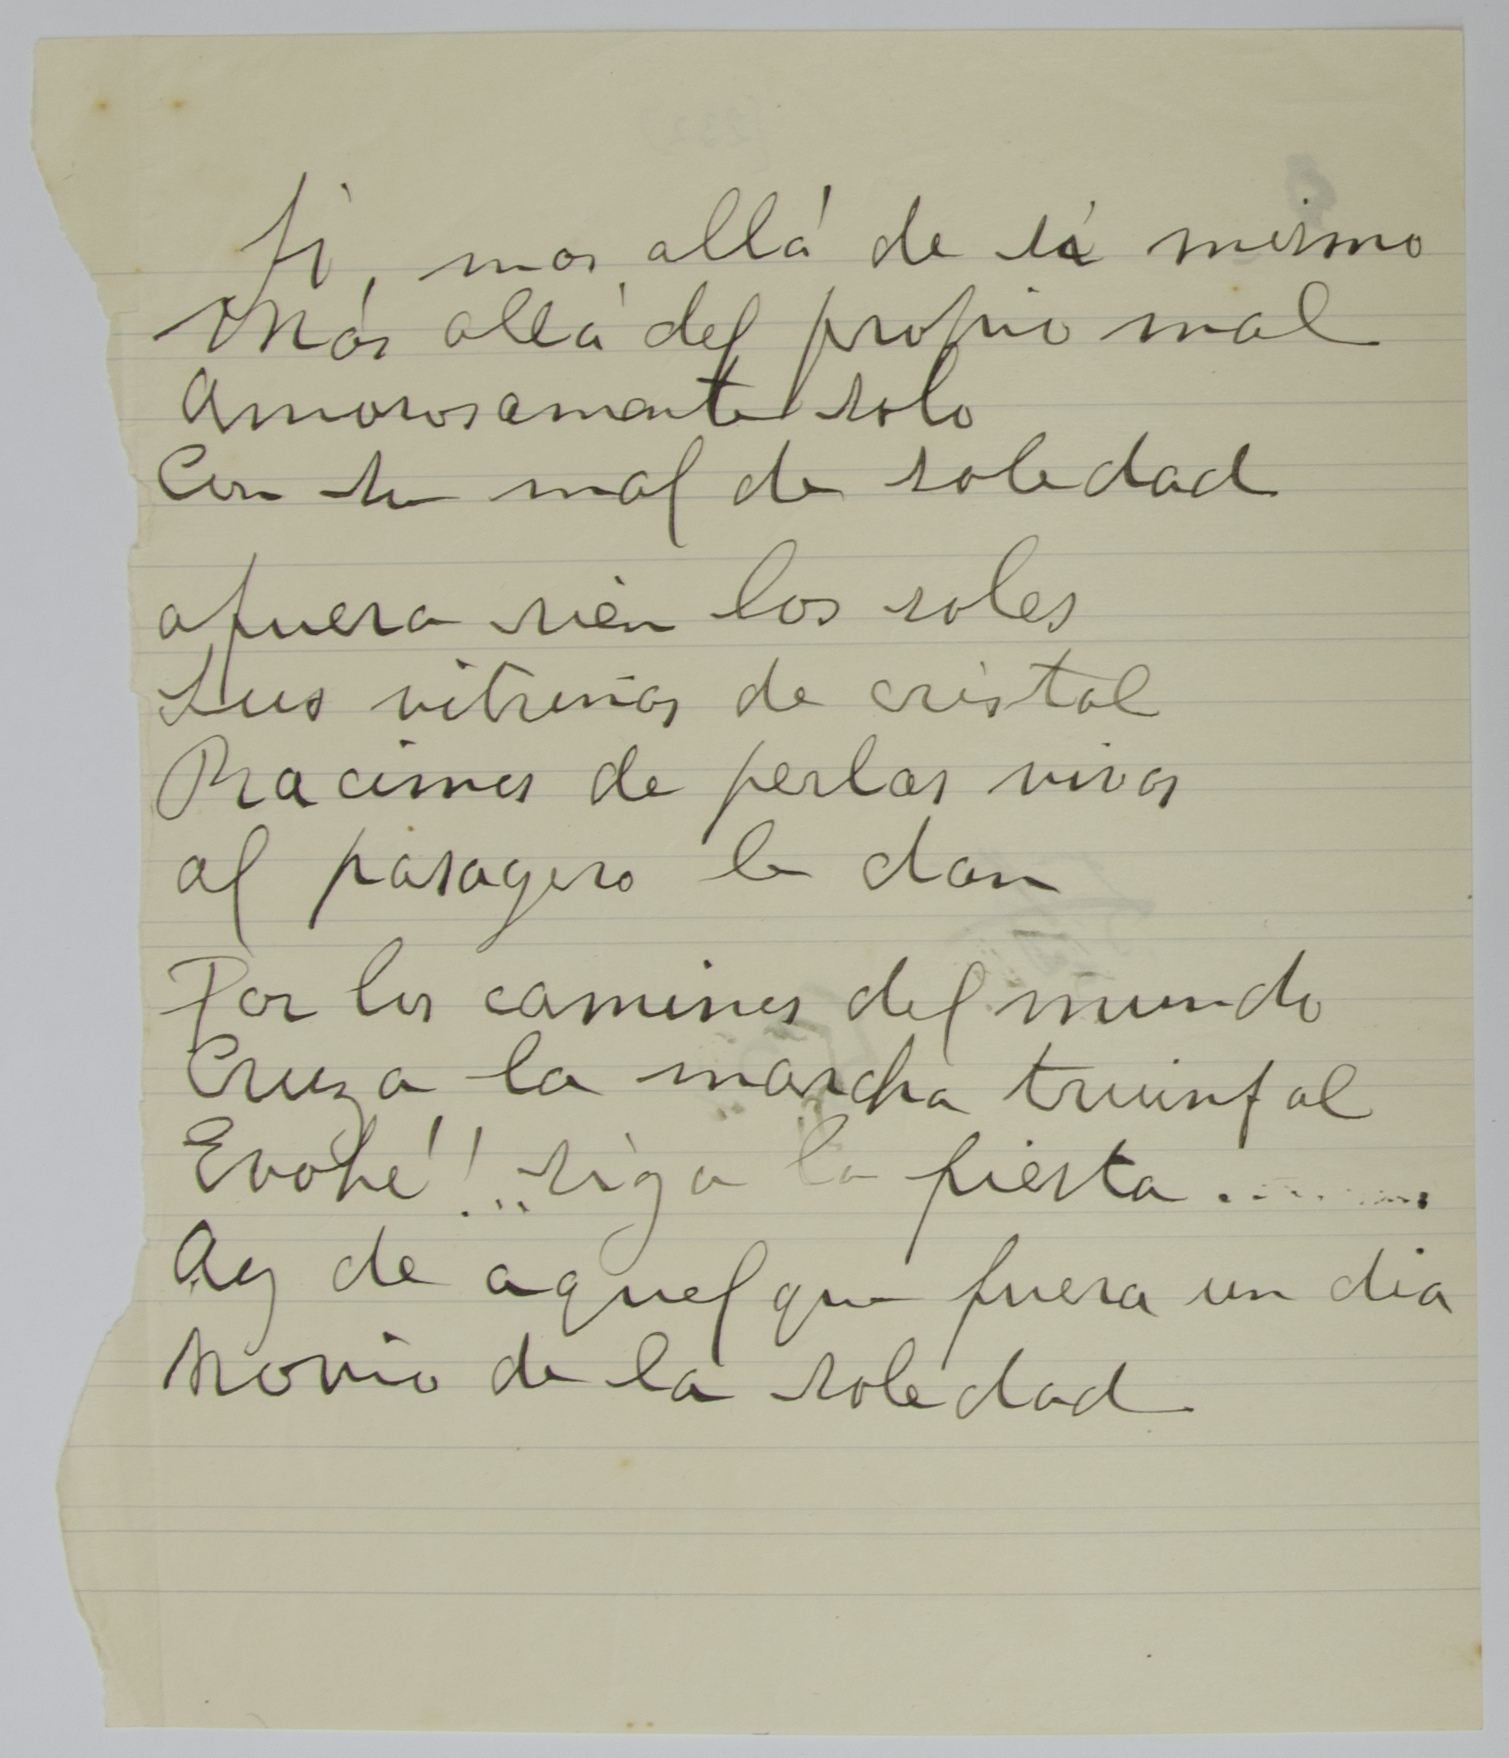 Si, mas allá de sí mismo
Más allá del propio mal
Amorosamente solo
Con su mal de soledad
afuera rien los soles
Sus vitrinas de cristal
Racimos de perlas vivas
al pasagero le dan
Por los caminos del mundo
Cruza la marcha triunfal
Evohé!... siga la fiesta.........
Ay de aquel que fuera un dia
Novio de la soledad